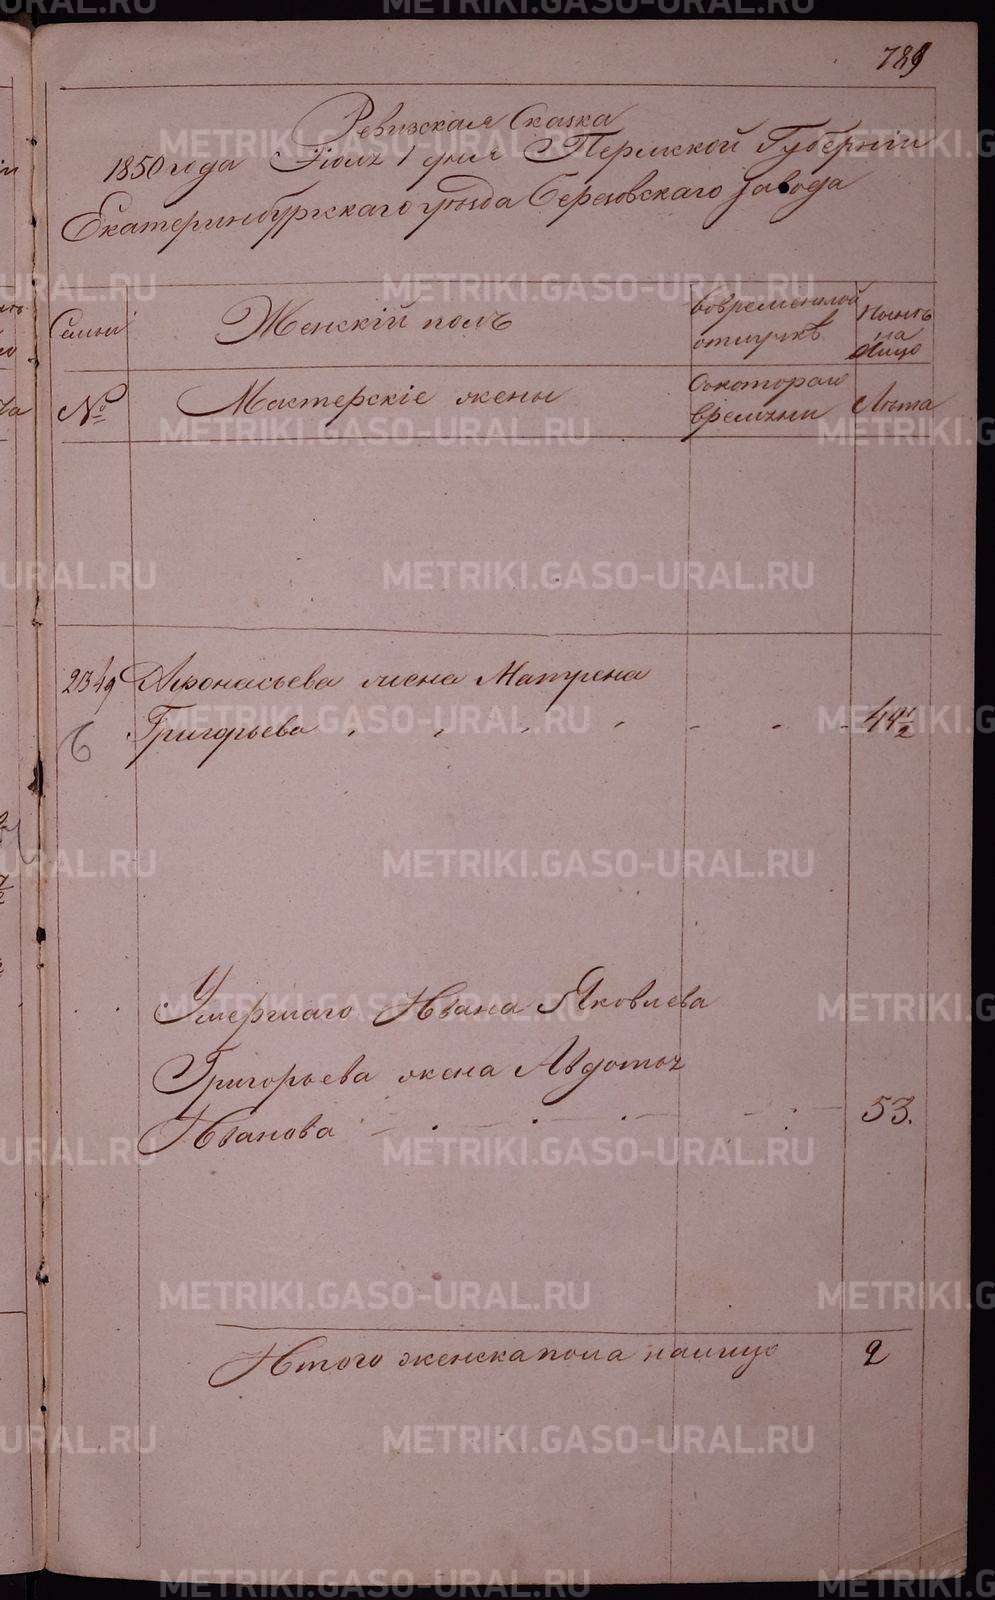 789
Ревизская Сказка
1850 года Июля 1 дня Пермской Губернии
Екатеринбургскаго уезда Березовскаго завода
Семьи
Женский полъ
во временной
отлучкѣ
Ныне
на
Лицо
№
Мастерские жены
Съ котораго
времяни
Лета
Афонасьева жена Матрена
Григорьева
49 1/2
6
Умершаго Ивана Яковлева
Григорьева жена Авдотья
Иванова
53.
Итого женска пола налицо
2
METRIKI.GASO-URAL.RU